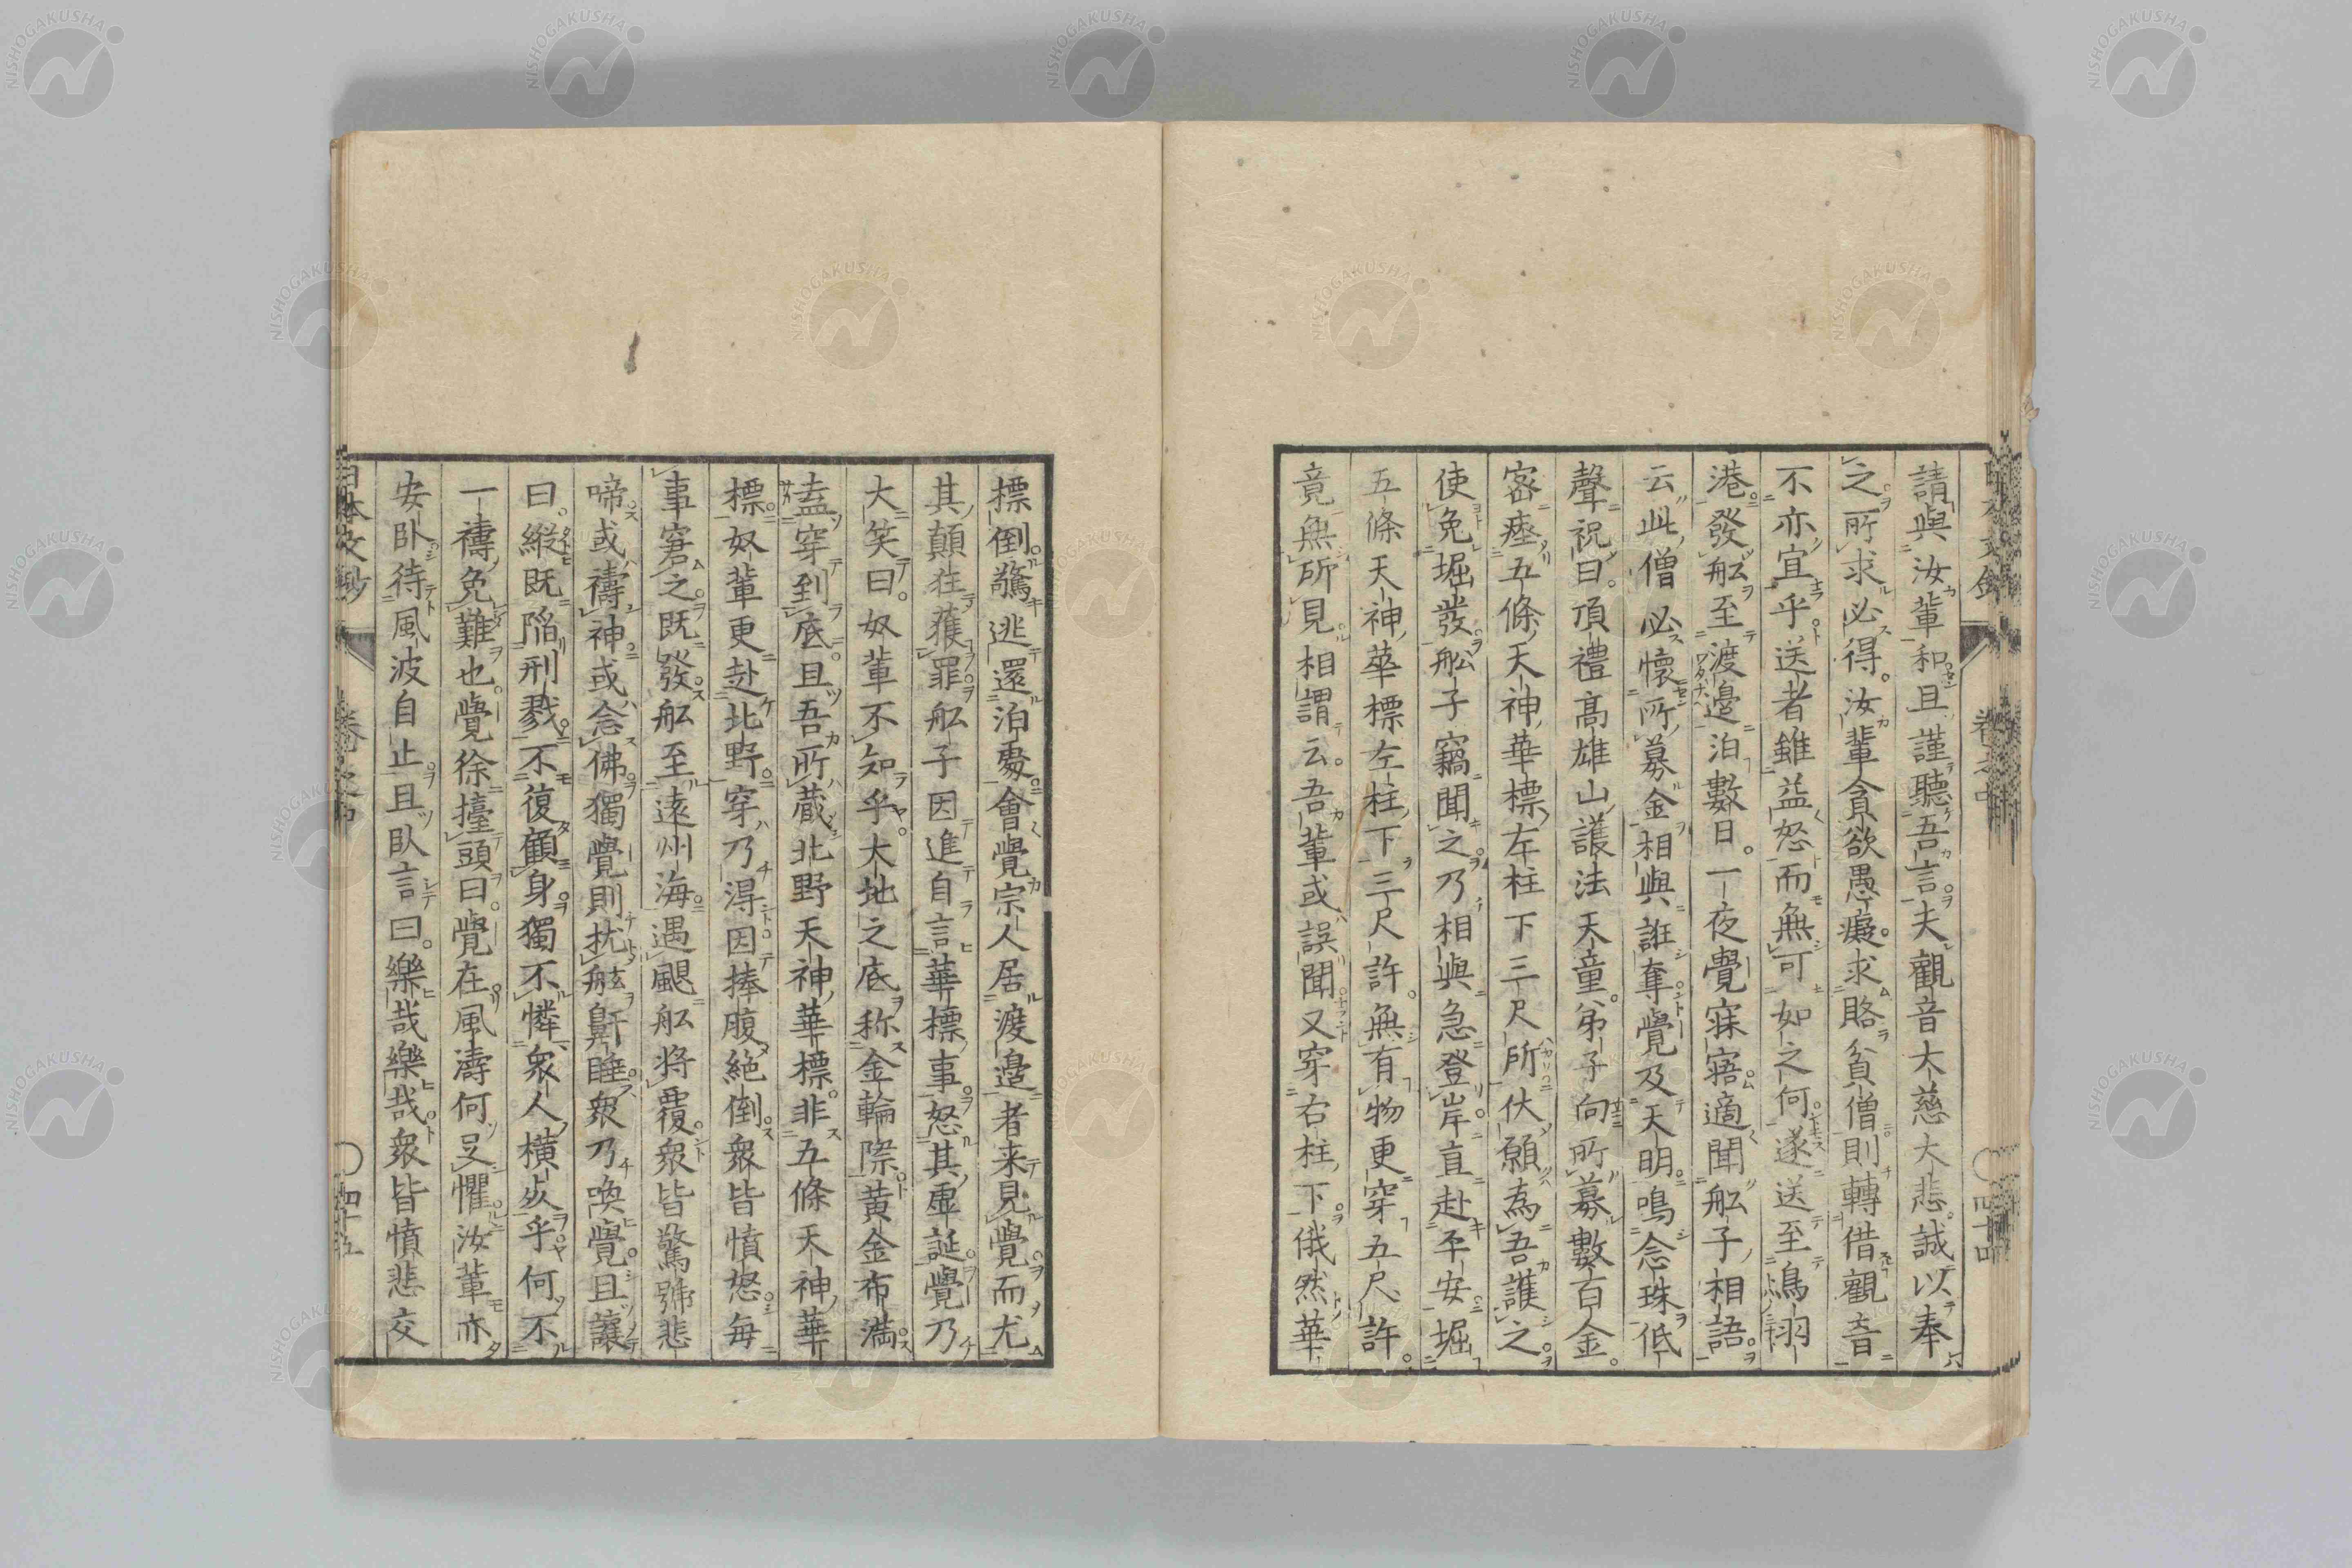 請與汝輩和且謹聽吾言夫觀音大慈大悲誠以奉
之所求必得。汝輩貪欲愚癡。求賂貧僧則轉借觀音
不亦宜乎送者雖益怒而無可如之何遂送至鳥羽
港發舩至渡邊泊數日。一夜覺寐寤適聞舩子相語
云此僧必懷所募金相與誑奪覺及天明鳴念珠低
聲祝曰。頂禮高雄山護法天童。弟子向所募數百金。
密瘞五條天神華標左柱下三尺所伏願為吾護之。
使免堀發舩子竊聞之乃相與急登岸直赴平安堀
五條天神華標左柱下三尺許。無有物更穿五尺許。
竟無所見相謂云。吾輩或誤聞又穿右柱下俄然華
標倒驚逃還泊處會覺宗人居渡邊者来見覺而尤
其顛狂獲罪舩子因進自言華標事怒其虛誕覺乃
大笑曰。奴輩不知乎。大地之底称金輪際黄金布滿
盍穿到底。且吾所蔵北野天神華標。非五條天神華
標奴輩更赴北野穿乃得因捧腹絶倒衆皆憤怒每
事窘之既發舩至遠州海遇颶舩將覆衆皆驚號悲
啼或禱神或念佛獨覺則扰舷鼾睡衆乃喚覺且讓
曰。縱既陷刑戮不復顧身獨不憐衆人橫死乎何不
一禱免難也。覺徐擡頭曰。覺在風濤何足懼汝輩亦
安臥待風波自止且臥言曰。樂哉樂哉衆皆憤悲交
日本文鈔
卷之中
四十四
四十五
NISHOGAKUSHA